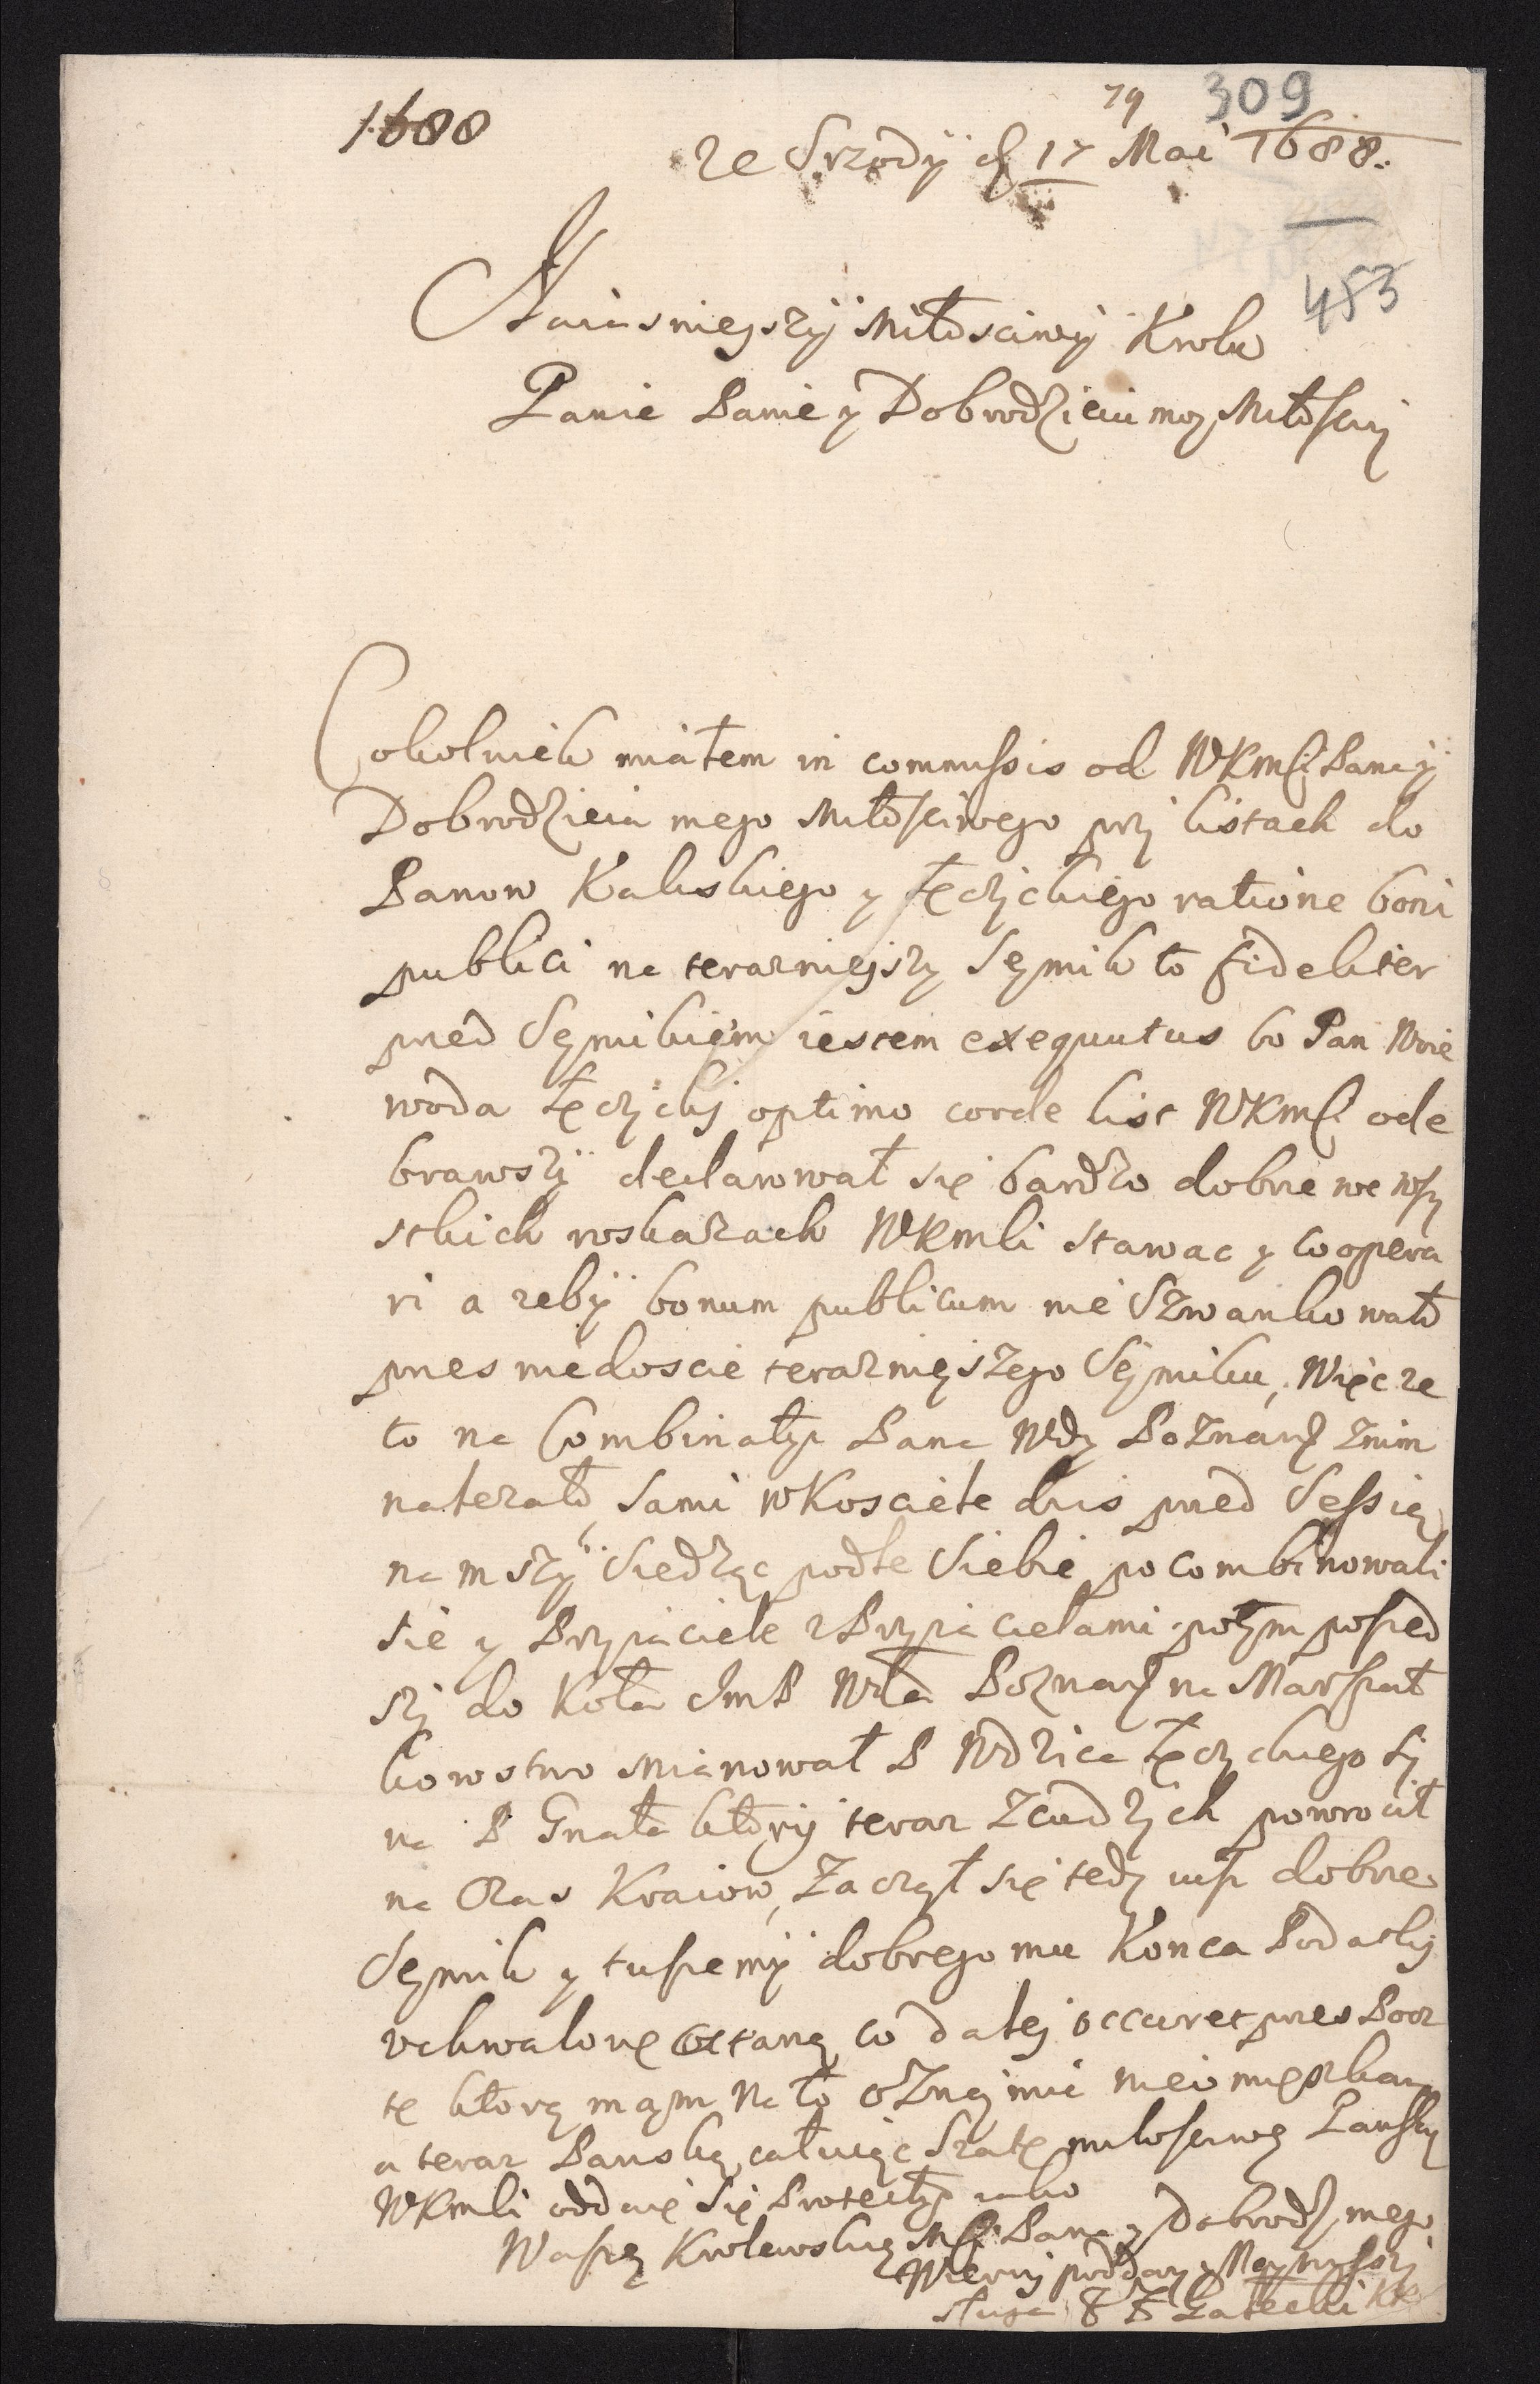 1688
79 309
ze Srzody d 17 Mai 1688.
453
Naiasnieyszÿ Miłosciwÿ Krolu
Panie Panie y Dobrodzieiu moy Miłosciwy
Cokolwiek miałem in commissis od WKMsci Pana y
Dobrodzieia mego Miłosciwego przy listach do
Panow Kaliskiego y Łęczyckiego ratione boni
publici na teraznieyszy Seymik to fideliter
przed Seymikiem iestem exequutus bo Pan Woie
woda Łęczycky optimo corde list WKMsci ode
brawszÿ declarował się bardzo dobrze we wszy
stkich roskazach WKMsci stawac y coopera
ri a zebÿ bonum publicum nie szwankowało
przes niedoscie teraznieyszego Seymiku, Więc ze
to na Combinatÿi Pana Wdy Poznanᵍ znim
nalezało, sami wKosciele dis przed Sessią
na mszÿ siedząc podle siebie pocombinowali
sie y Przyiaciele zPrzyiaciełami potym poszed
szy do Koła JmP Wda Poznanᵍ na Marszał
kowstwo mianował P Wdzica Łęczyckiego Sy
na P Gnata ktory teraz zcudzych powrocił
na czas Kraiow, Zaczął się tedy dobrze
Seymik y tuszemÿ dobrego mu Konca Podatky
vchwalone ostaną co daley occuret przes Pocz
tę ktorą mam na to oznaymic nieomięszkam
a teraz Panską całuiąc szatę miłosciwey Panskiey
WKMsci oddaię się Protectÿi iako
Waszey Krolewskiey Msci Pana y Dobrodz, mego
Wierny poddany y Naynizszy
sługa F Z Gałecki KK